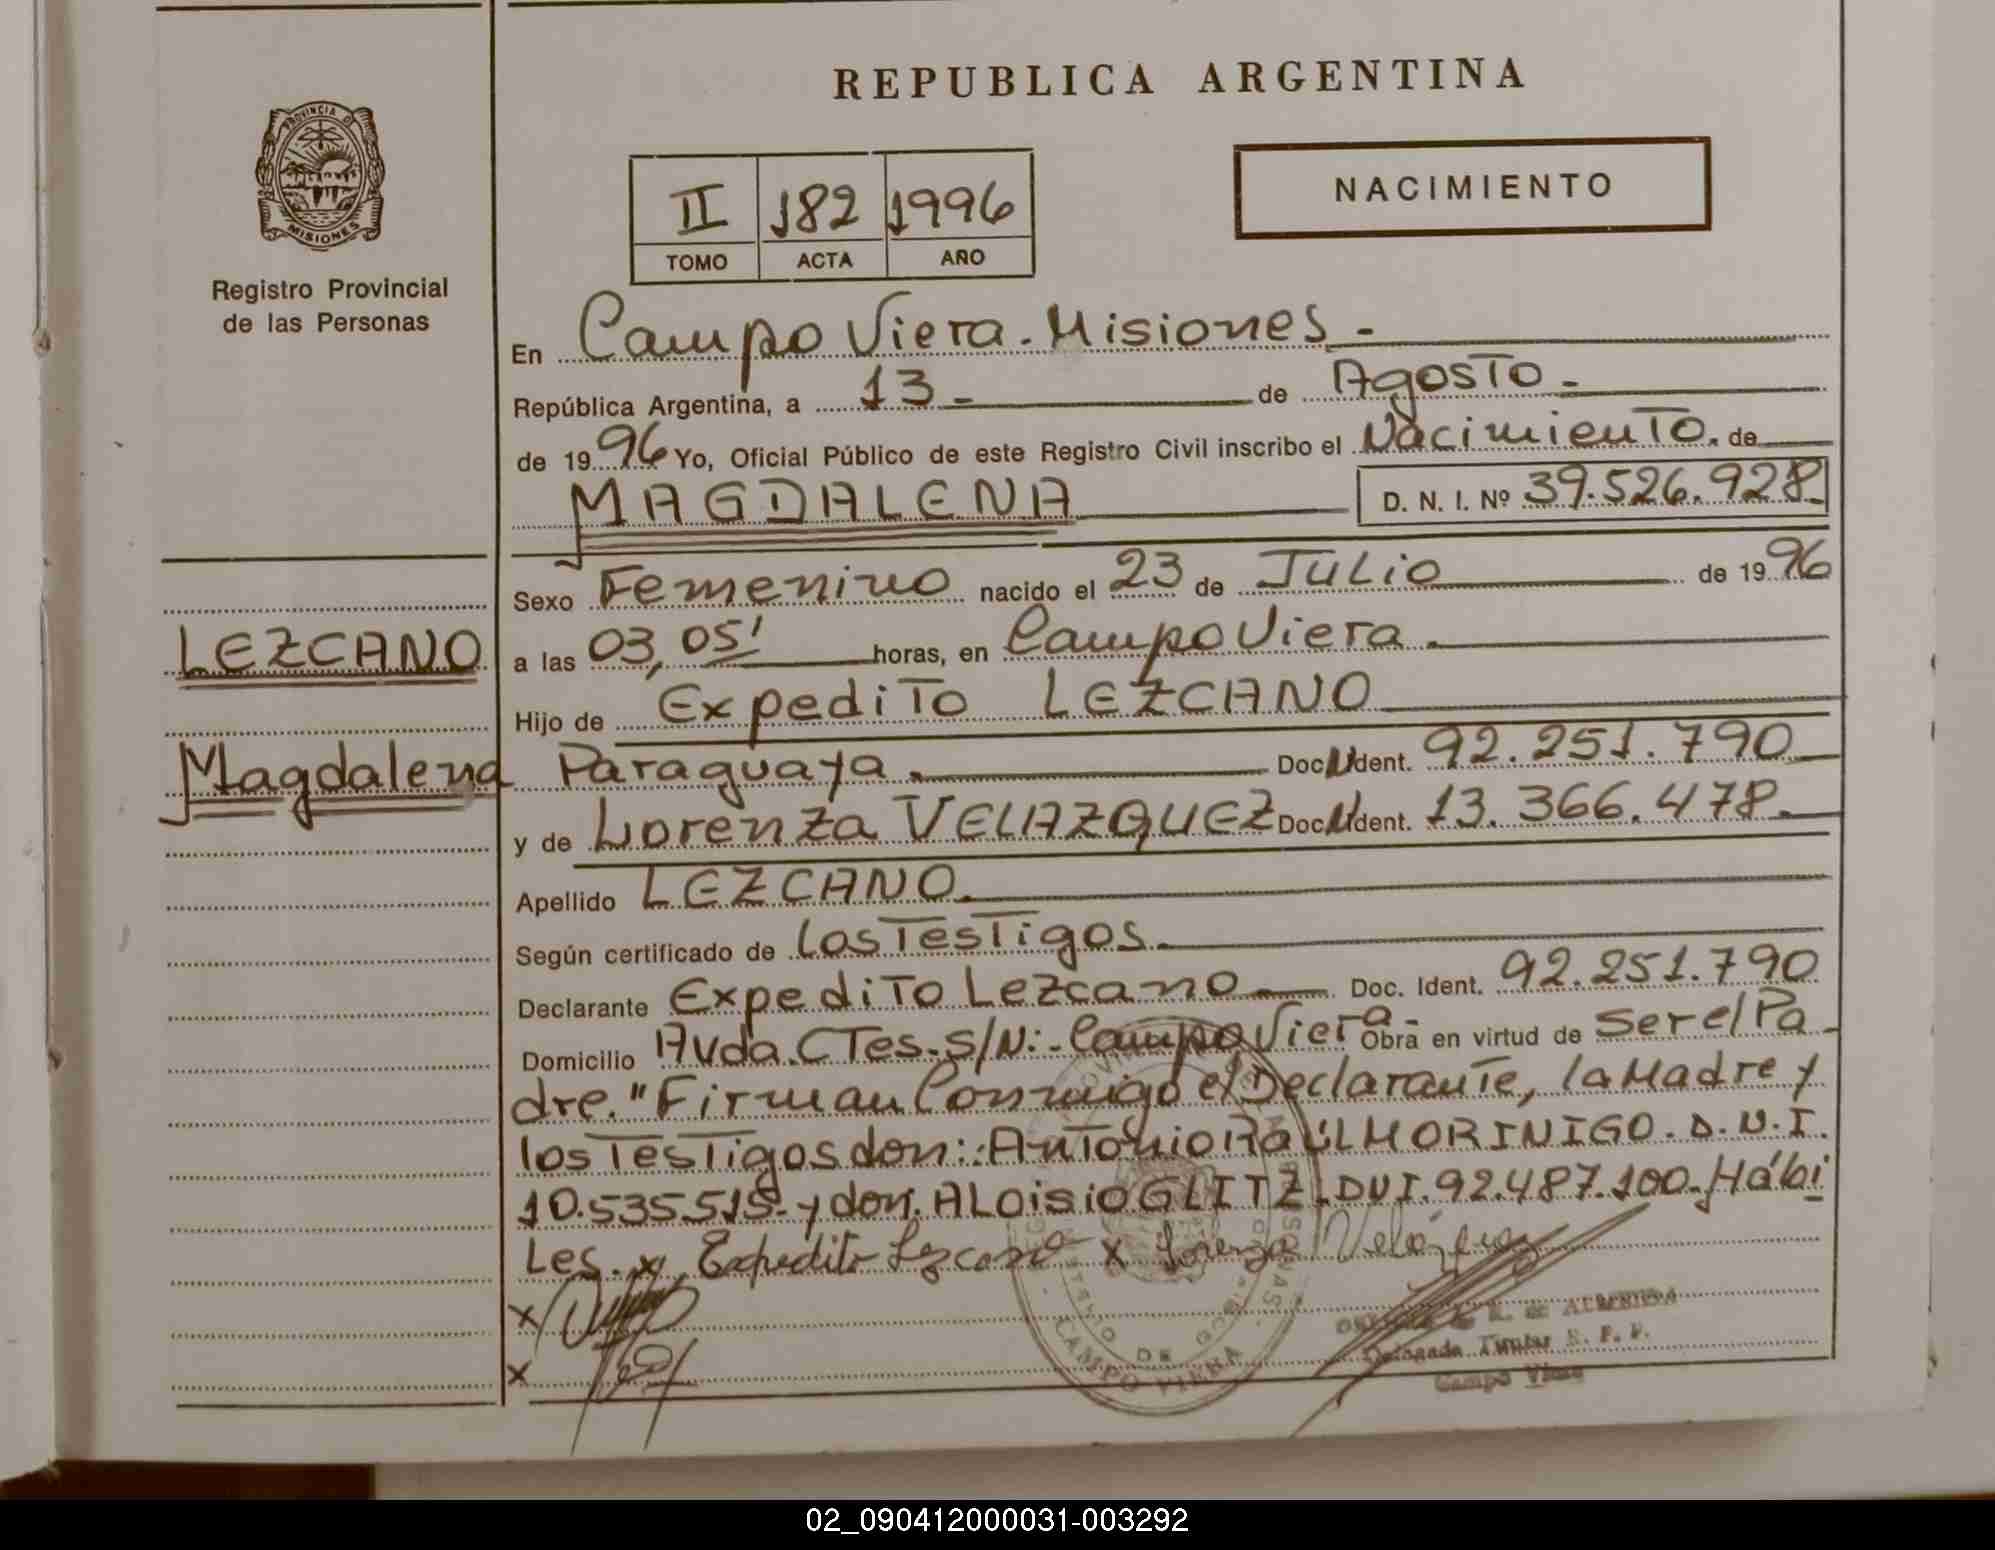 REPUBLICA ARGENTINA
PROVINCIA D
MISIONES
Registro Provincial
de las Personas
II 182 1996
TOMO ACTA AÑO
NACIMIENTO
En Campo Viera. Misiones.-
República Argentina, a 13.- de Agosto.-
de 1996 Yo, Oficial Público de este Registro Civil inscribo el Nacimiento. de
MAGDALENA D. N. I. Nº 39.526.928
Sexo Femenino nacido el 23 de Julio de 1996
LEZCANO
a las 03,05' horas, en Campo Viera.
Hijo de Expedito LEZCANO
Magdalena
Paraguaya. Doc. Ident. 92.251.790
y de Lorenza VELAZQUEZ Doc. Ident. 13.366.478.
Apellido LEZCANO.
Según certificado de los Testigos.
Declarante Expedito Lezcano Doc. Ident. 92.251.790
Domicilio Avda. CTes. S/N:- Campo Viera- Obra en virtud de Ser el Pa
dre. "Firman Conmigo el Declarante, la Madre y
los Testigos don:: Antonio RAÚL MORINIGO. D.N.I.
10.535.515.- y don. ALOISIO GLITZ. DNI. 92.487.100.- Hábi
Les. x Expedito Lezcano x Lorenza Velázquez
x
x
DE
CAMPO VIERA
Delegada Titular R. P. P.
Campo Viera
02_090412000031-003292